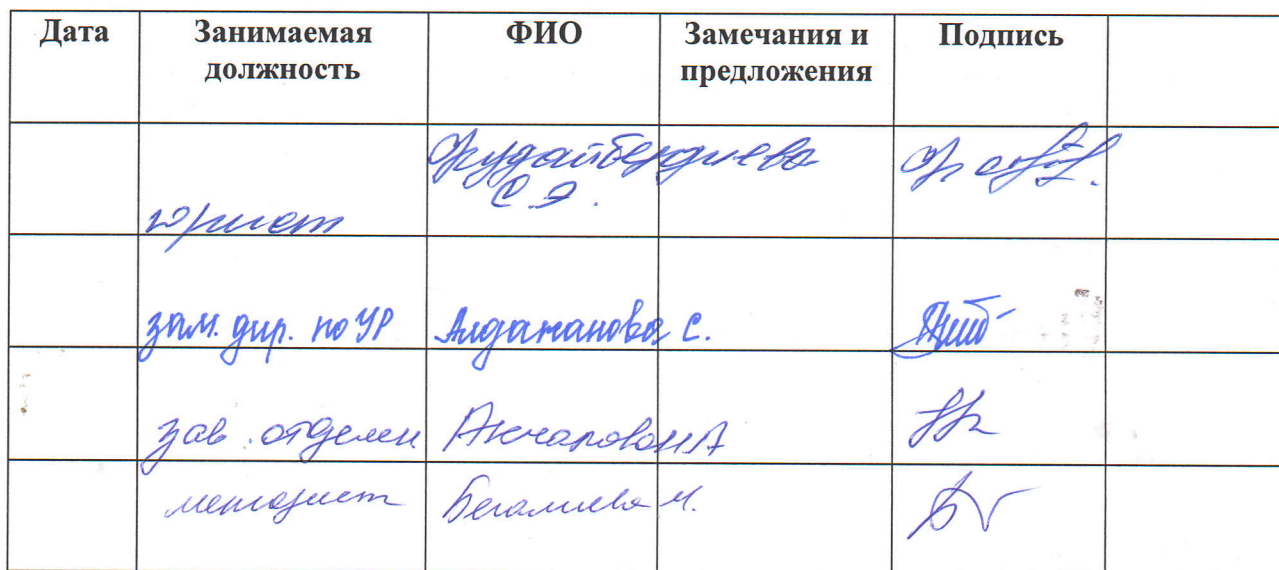 Дата Занимаемая должность ФИО Замечания и предложения Подпись
юрист С.Э.
зам. дир. по УР Алдажанова С.
зав. отделен
методист Бегалиева М.